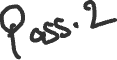 Poss. 2